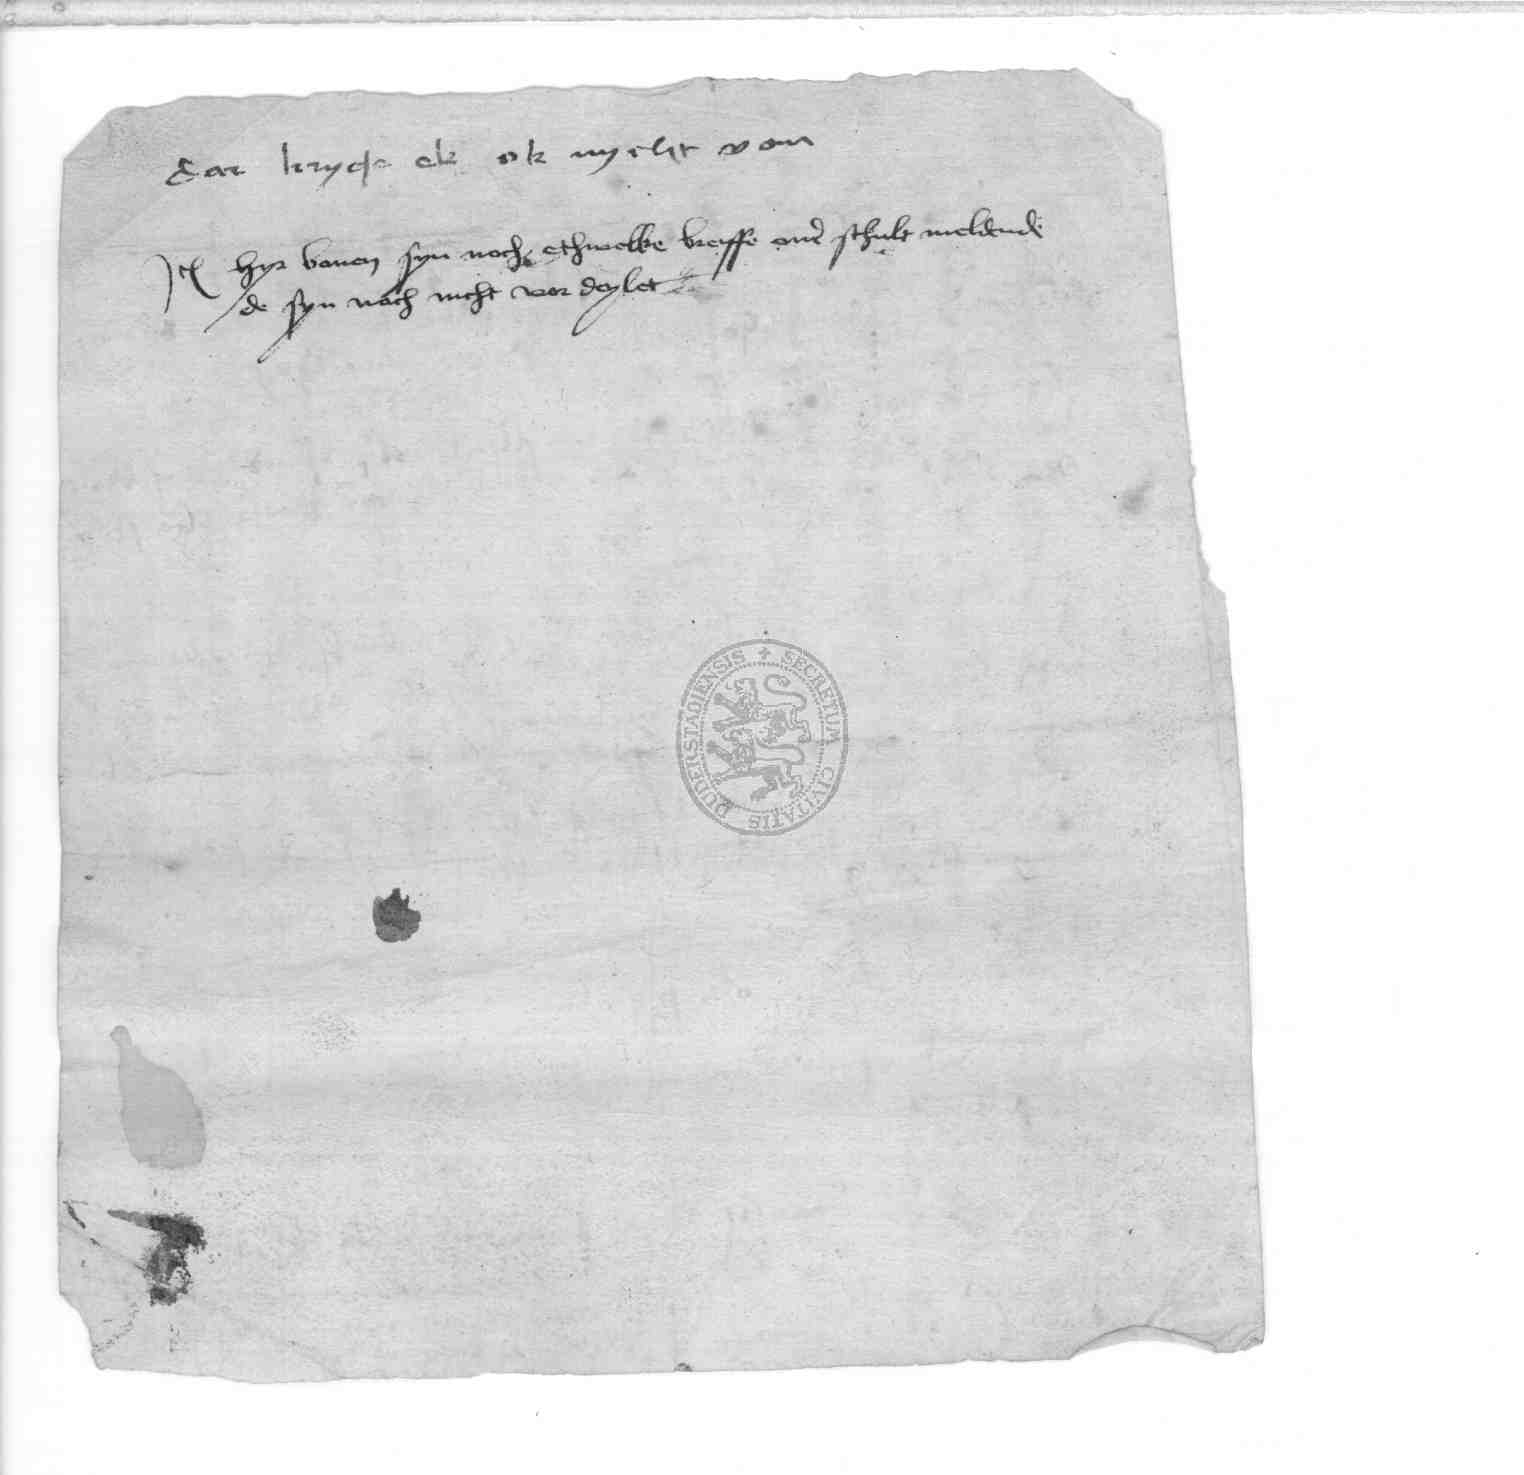 dar kryge ek ok nycht van
It hyr bouen syn noch ethwelke breyffe ouer schult meldende
de syn noch nicht vor deylet
SECRETUM CIVITATIS DUDERSTADIENSIS